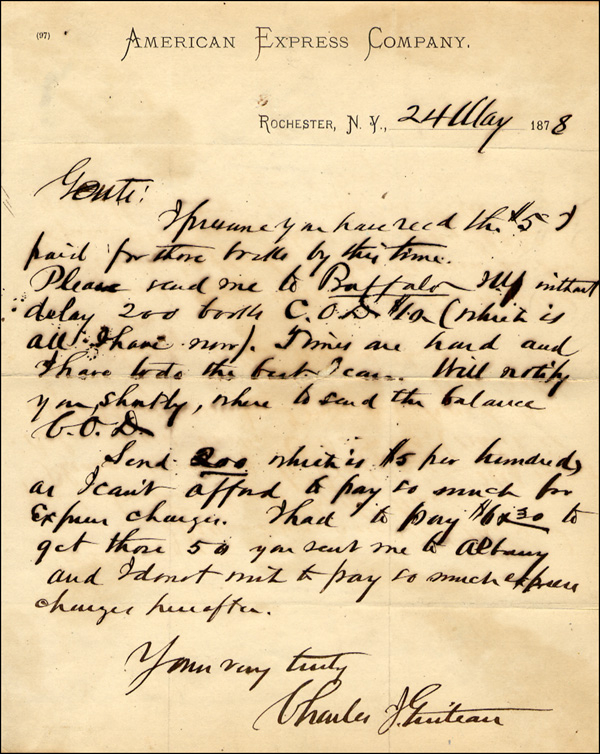 (97)
AMERICAN EXPRESS COMPANY.
ROCHESTER, N. Y., 24 May 1878
Gents:
I presume you have recd the $5 I
paid for those books by this time.
Please send me to Buffalo NY without
delay 200 books C.O.D. $10 (which is
all I have now). Times are hard and
I have to do the best I can. Will notify
you, shortly, where to send the balance
C.O.D.
Send 200 which is $5 per hundred,
as I can't afford to pay so much for
Express charges. I had to pay to
get those 50 you sent me to Albany
and I do not wish to pay so much express
charges hereafter.
Yours very truly
Charles J. Guiteau